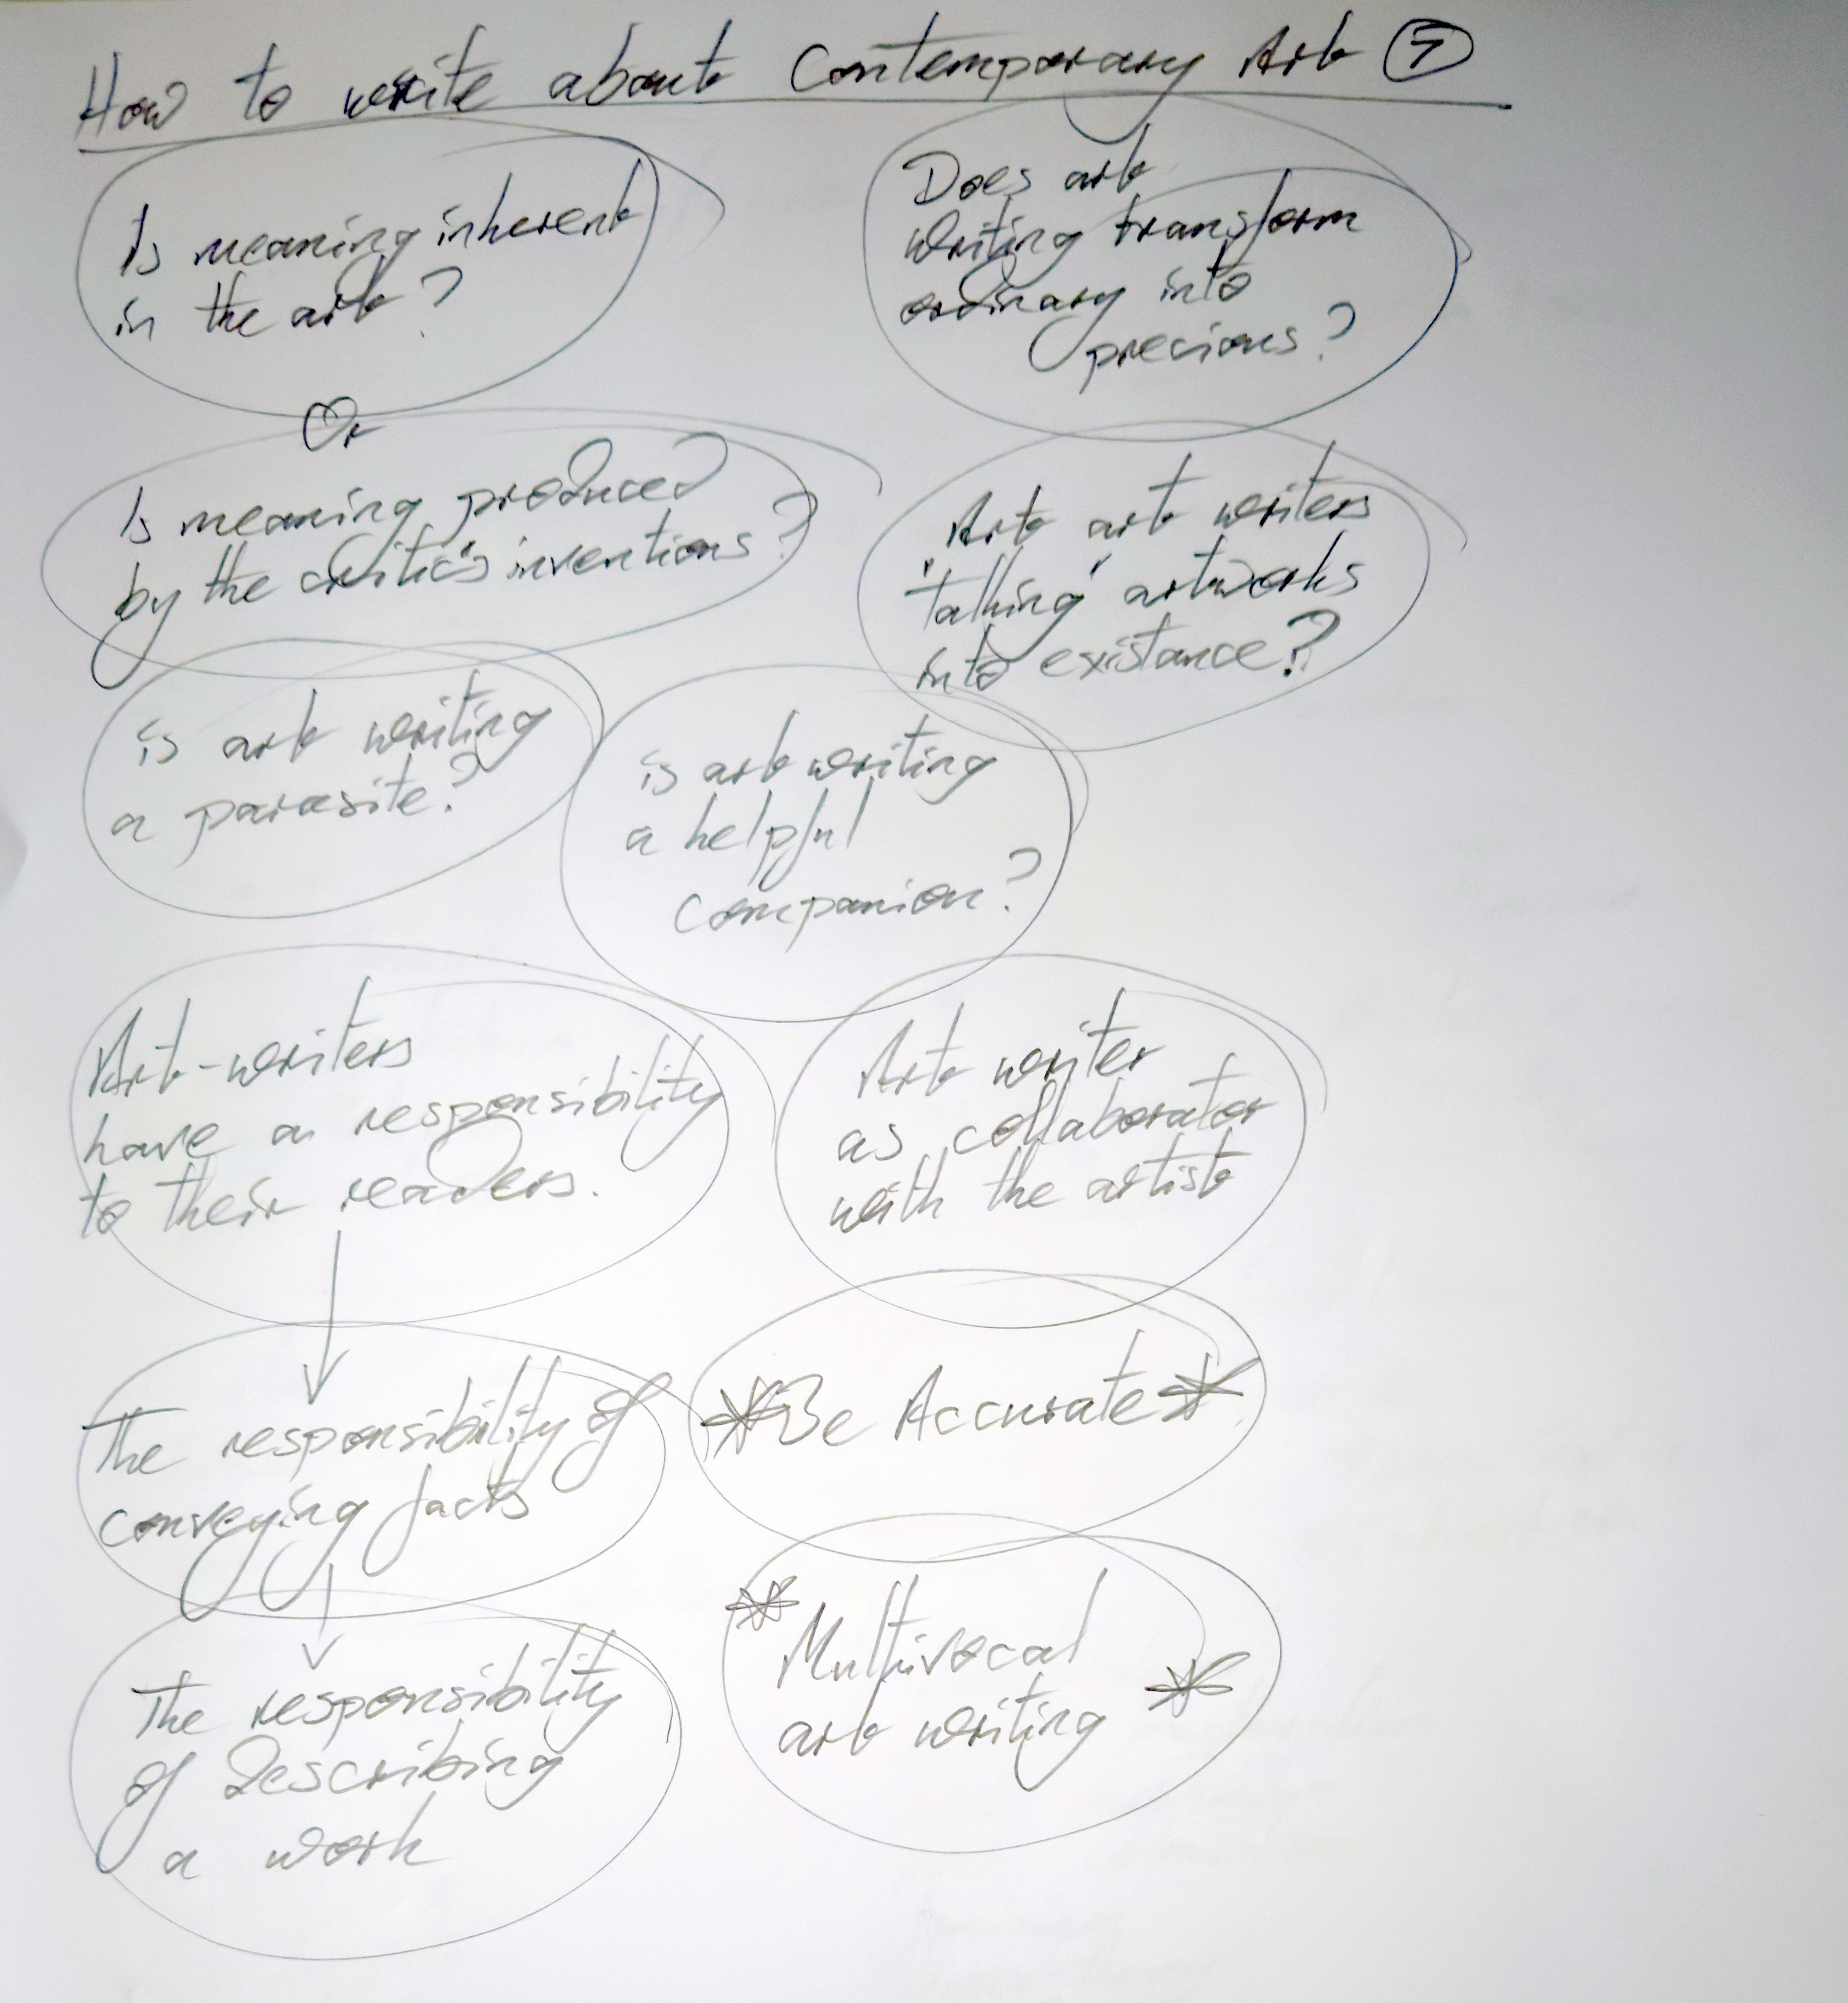 How to write about Contemporary Art 7
Is meaning inherent
in the art?
Or
Is meaning produced
by the critic's inventions?
Does art
writing transform
ordinary into
precious?
Art art writers
"talking" artworks
into existance?
is art writing
a parasite?
is art writing
a helpful
companion?
Art-writers
have a responsibility
to their readers.
Art writer
as collaborator
with the artist
The responsibility of
conveying facts
*Be Accurate*
The responsibility
of describing
a work
* Multivocal
art writing *